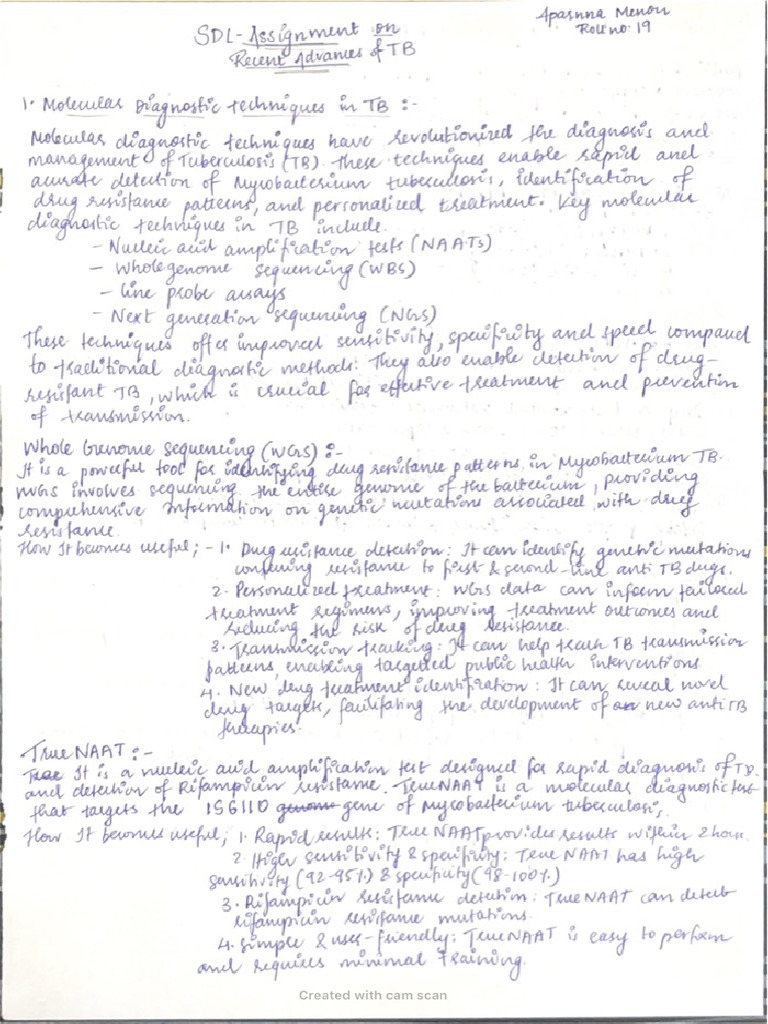 Aparna Menon
Roll no: 19
SDL-Assignment on
Recent Advances of TB
1. Molecular Diagnostic techniques in TB :-
Molecular diagnostic techniques have revolutionized the diagnosis and
management of Tuberculosis (TB). These techniques enable rapid and
accurate detection of Mycobacterium tuberculosis, identification of
drug resistance patterns, and personalized treatment. Key molecular
diagnostic techniques in TB include.
- Nucleic acid amplification tests (NAATs)
- Whole genome sequencing (WBS)
- Line probe assays
- Next generation sequencing (NGS)
These techniques offer improved sensitivity, specificity and speed compared
to traditional diagnostic methods. They also enable detection of drug-
resistant TB, which is crucial for effective treatment and prevention
of transmission.
Whole Genome Sequencing (WGS) :-
It is a powerful tool for identifying drug resistance patterns in Mycobacterium TB.
WGS involves sequencing the entire genome of the bacterium, providing
comprehensive information on genetic mutations associated with drug
resistance.
How It becomes useful; - 1. Drug resistance detection: It can identify genetic mutations
confering resistance to first & second-line anti TB drugs.
2. Personalized treatment: WGS data can inform tailored
treatment regimens, improving treatment outcomes and
reducing the risk of drug resistance.
3. Transmission tracking: It can help track TB transmission
patterns, enabling targetted public health interventions
4. New drug treatment identification: It can reveal novel
drug targets, facilitating the development of new anti TB
therapies.
True NAAT :-
It is a nucleic acid amplification test designed for rapid diagnosis of TB
and detection of Rifampicin resistance. TrueNAAT is a molecular diagnostic test
that targets the IS6110 genome gene of Mycobacterium tuberculosis,
How It becomes useful; 1. Rapid results: True NAAT provides results within 2 hours.
2. Higher sensitivity & specificity: True NAAT has high
sensitivity (92-95%) & specificity (98-100%)
3. Rifampicin resistance detection: TrueNAAT can detect
rifampicin resistance mutations.
4. Simple & user-friendly: TrueNAAT is easy to perform
and requires minimal training.
Created with cam scan